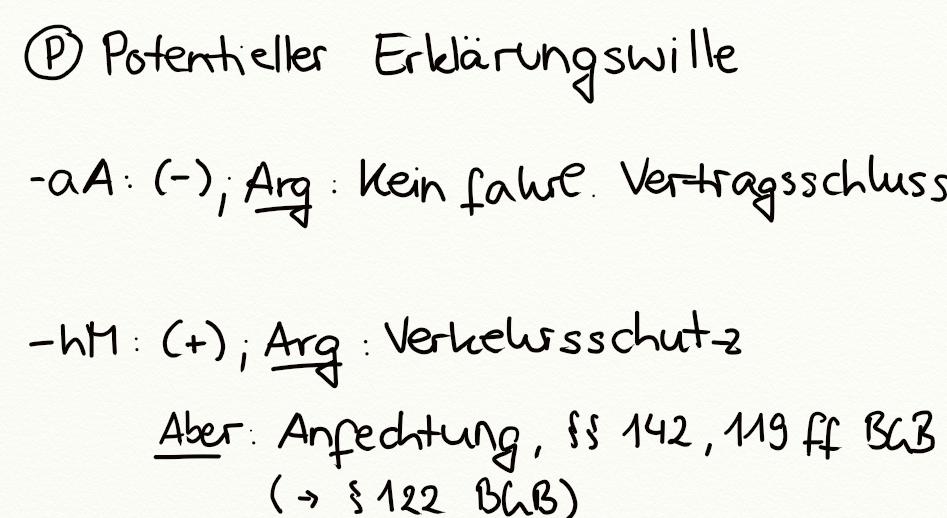 Ⓟ Potentieller Erklärungswille
- aA: (-); Arg: Kein fahrl. Vertragsschluss
- hM: (+); Arg: Verkehrsschutz
Aber: Anfechtung, §§ 142, 119 ff BGB
(→ § 122 BGB)